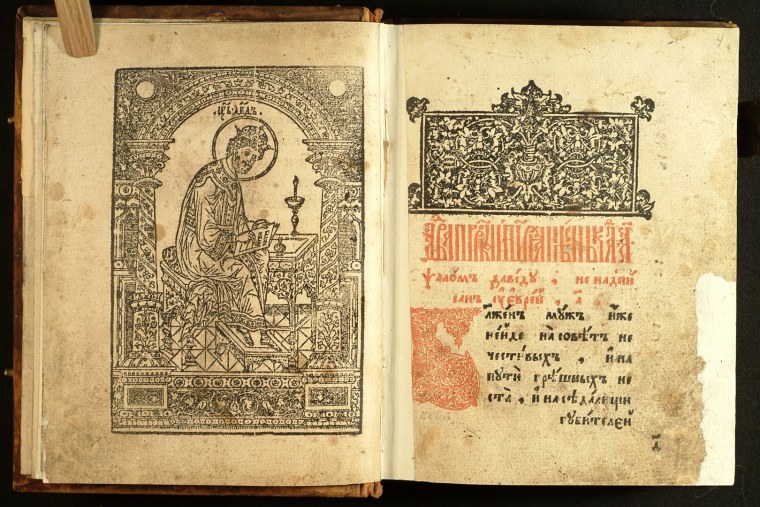 ЦРЬ ДВДЪ
4
ѱаломъ давѣду , не надпи
санъ ѹ҆ еврей , а҃
Блаженъ мѹжъ и҆́же
не и҆́де на совѣ́тъ не
чести́выхъ , и҆ на
пѹти̑ грѣ́шныхъ не
ста̀ , и҆ на сѣдалищи
гѹби́телей
д҃